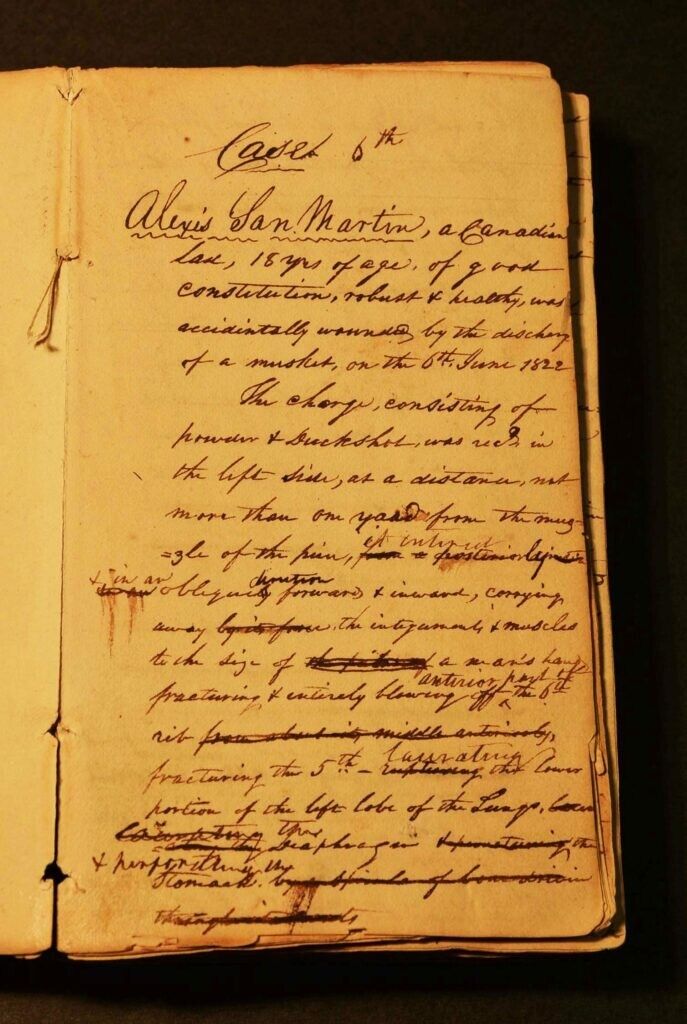 Case 6th
Alexis San Martin, a Canadian
Lad, 18 yrs of age, of good
constitution, robust & healthy, was
accidentally wounded by the discharg
of a musket, on the 6th June 1822
The charge, consisting of
powder & Duckshot, was recd in
the left side, at a distance, not
more than one yard from the muz-
=zle of the piece, it entered from a posteriorly
& in an obliquely direction forward & inward, carrying
away by its force the integuments & muscles
to the size of a man's hand,
fracturing & entirely blowing off anterior part of the 6th
rib from about its middle anteriorly,
fracturing the 5th – lacerating rupturing the lower
portion of the left lobe of the Lungs,
the Diaphragm & puncturing the
& perforating the
Stomach. by a spicula of bone driven
through